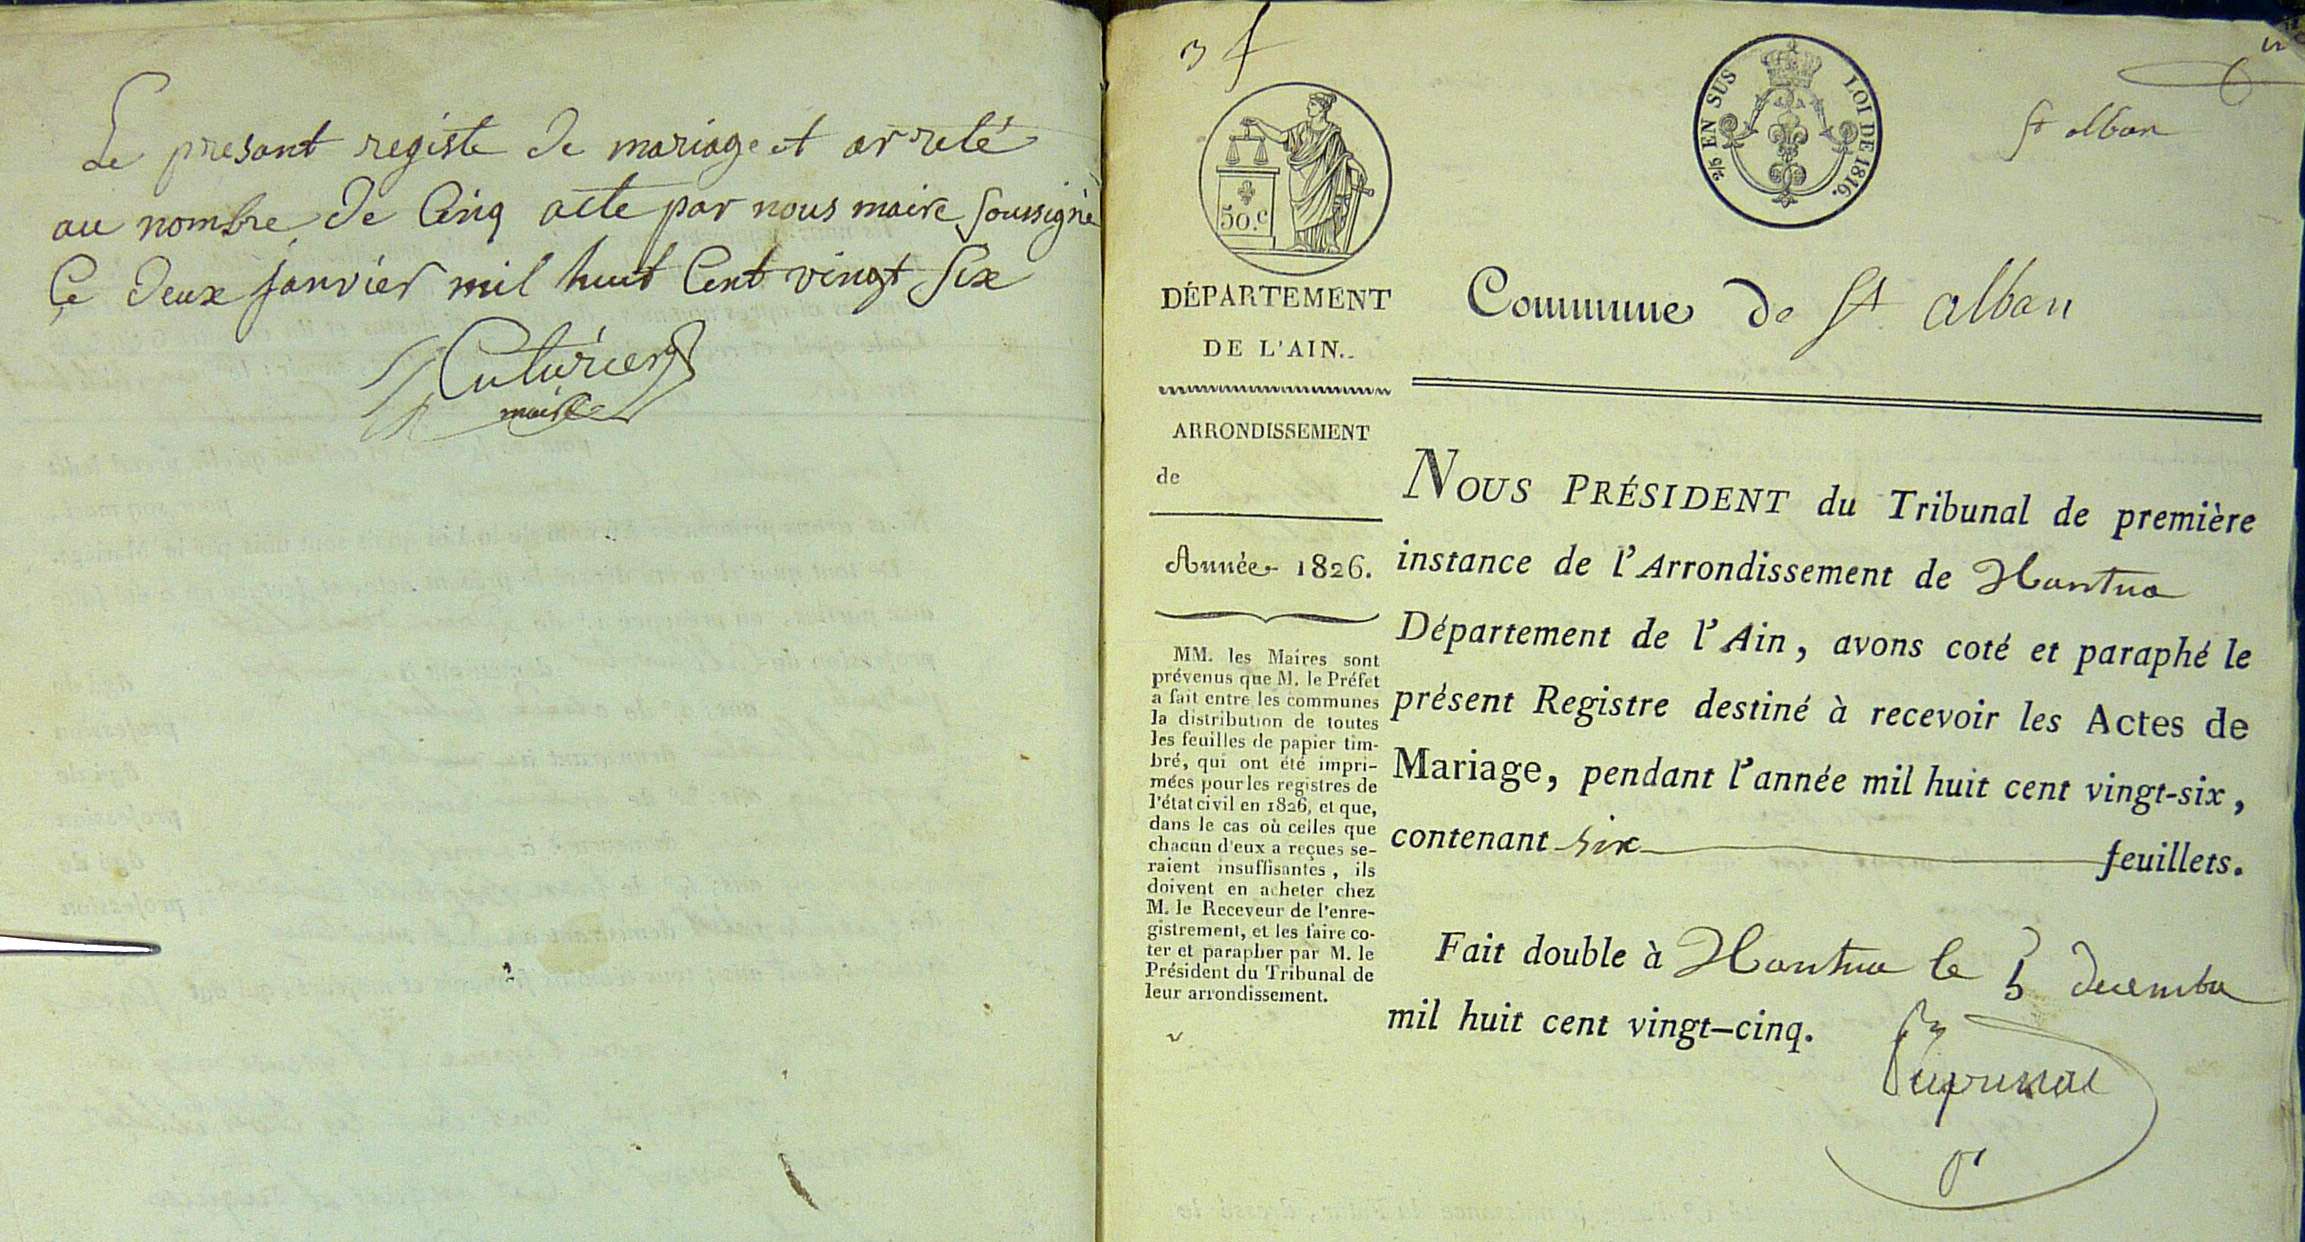 Le presant registe de mariage et arreté
au nombre de Cinq acte par nous maire soussigné
Ce deux janvier mil huit Cent vingt six
maire
3 f
50.c
2/5 EN SUS
LOI DE 1816.
St alban
DÉPARTEMENT
DE L'AIN.
ARRONDISSEMENT
de
Année 1826.
MM. les Maires sont
prévenus que M. le Préfet
a fait entre les communes
la distribution de toutes
les feuilles de papier tim-
bré, qui ont été impri-
mées pour les registres de
l'état civil en 1826, et que,
dans le cas où celles que
chacun d'eux a reçues se-
raient insuffisantes, ils
doivent en acheter chez
M. le Receveur de l'enre-
gistrement, et les faire co-
ter et parapher par M. le
Président du Tribunal de
leur arrondissement.
Commune de St alban
NOUS PRÉSIDENT du Tribunal de première
instance de l'Arrondissement de Nantua
Département de l'Ain, avons coté et paraphé le
présent Registre destiné à recevoir les Actes de
Mariage, pendant l'année mil huit cent vingt-six,
contenant six feuillets.
Fait double à Nantua le 5 decembre
mil huit cent vingt-cinq.